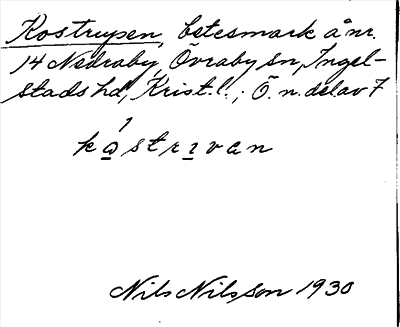 Kostrupen, betesmark å nr.
14 Nedraby, Övraby sn, Ingel-
stads hd, Krist. l.; Ö. n. del av 7
kastrıvan
Nils Nilsson 1930